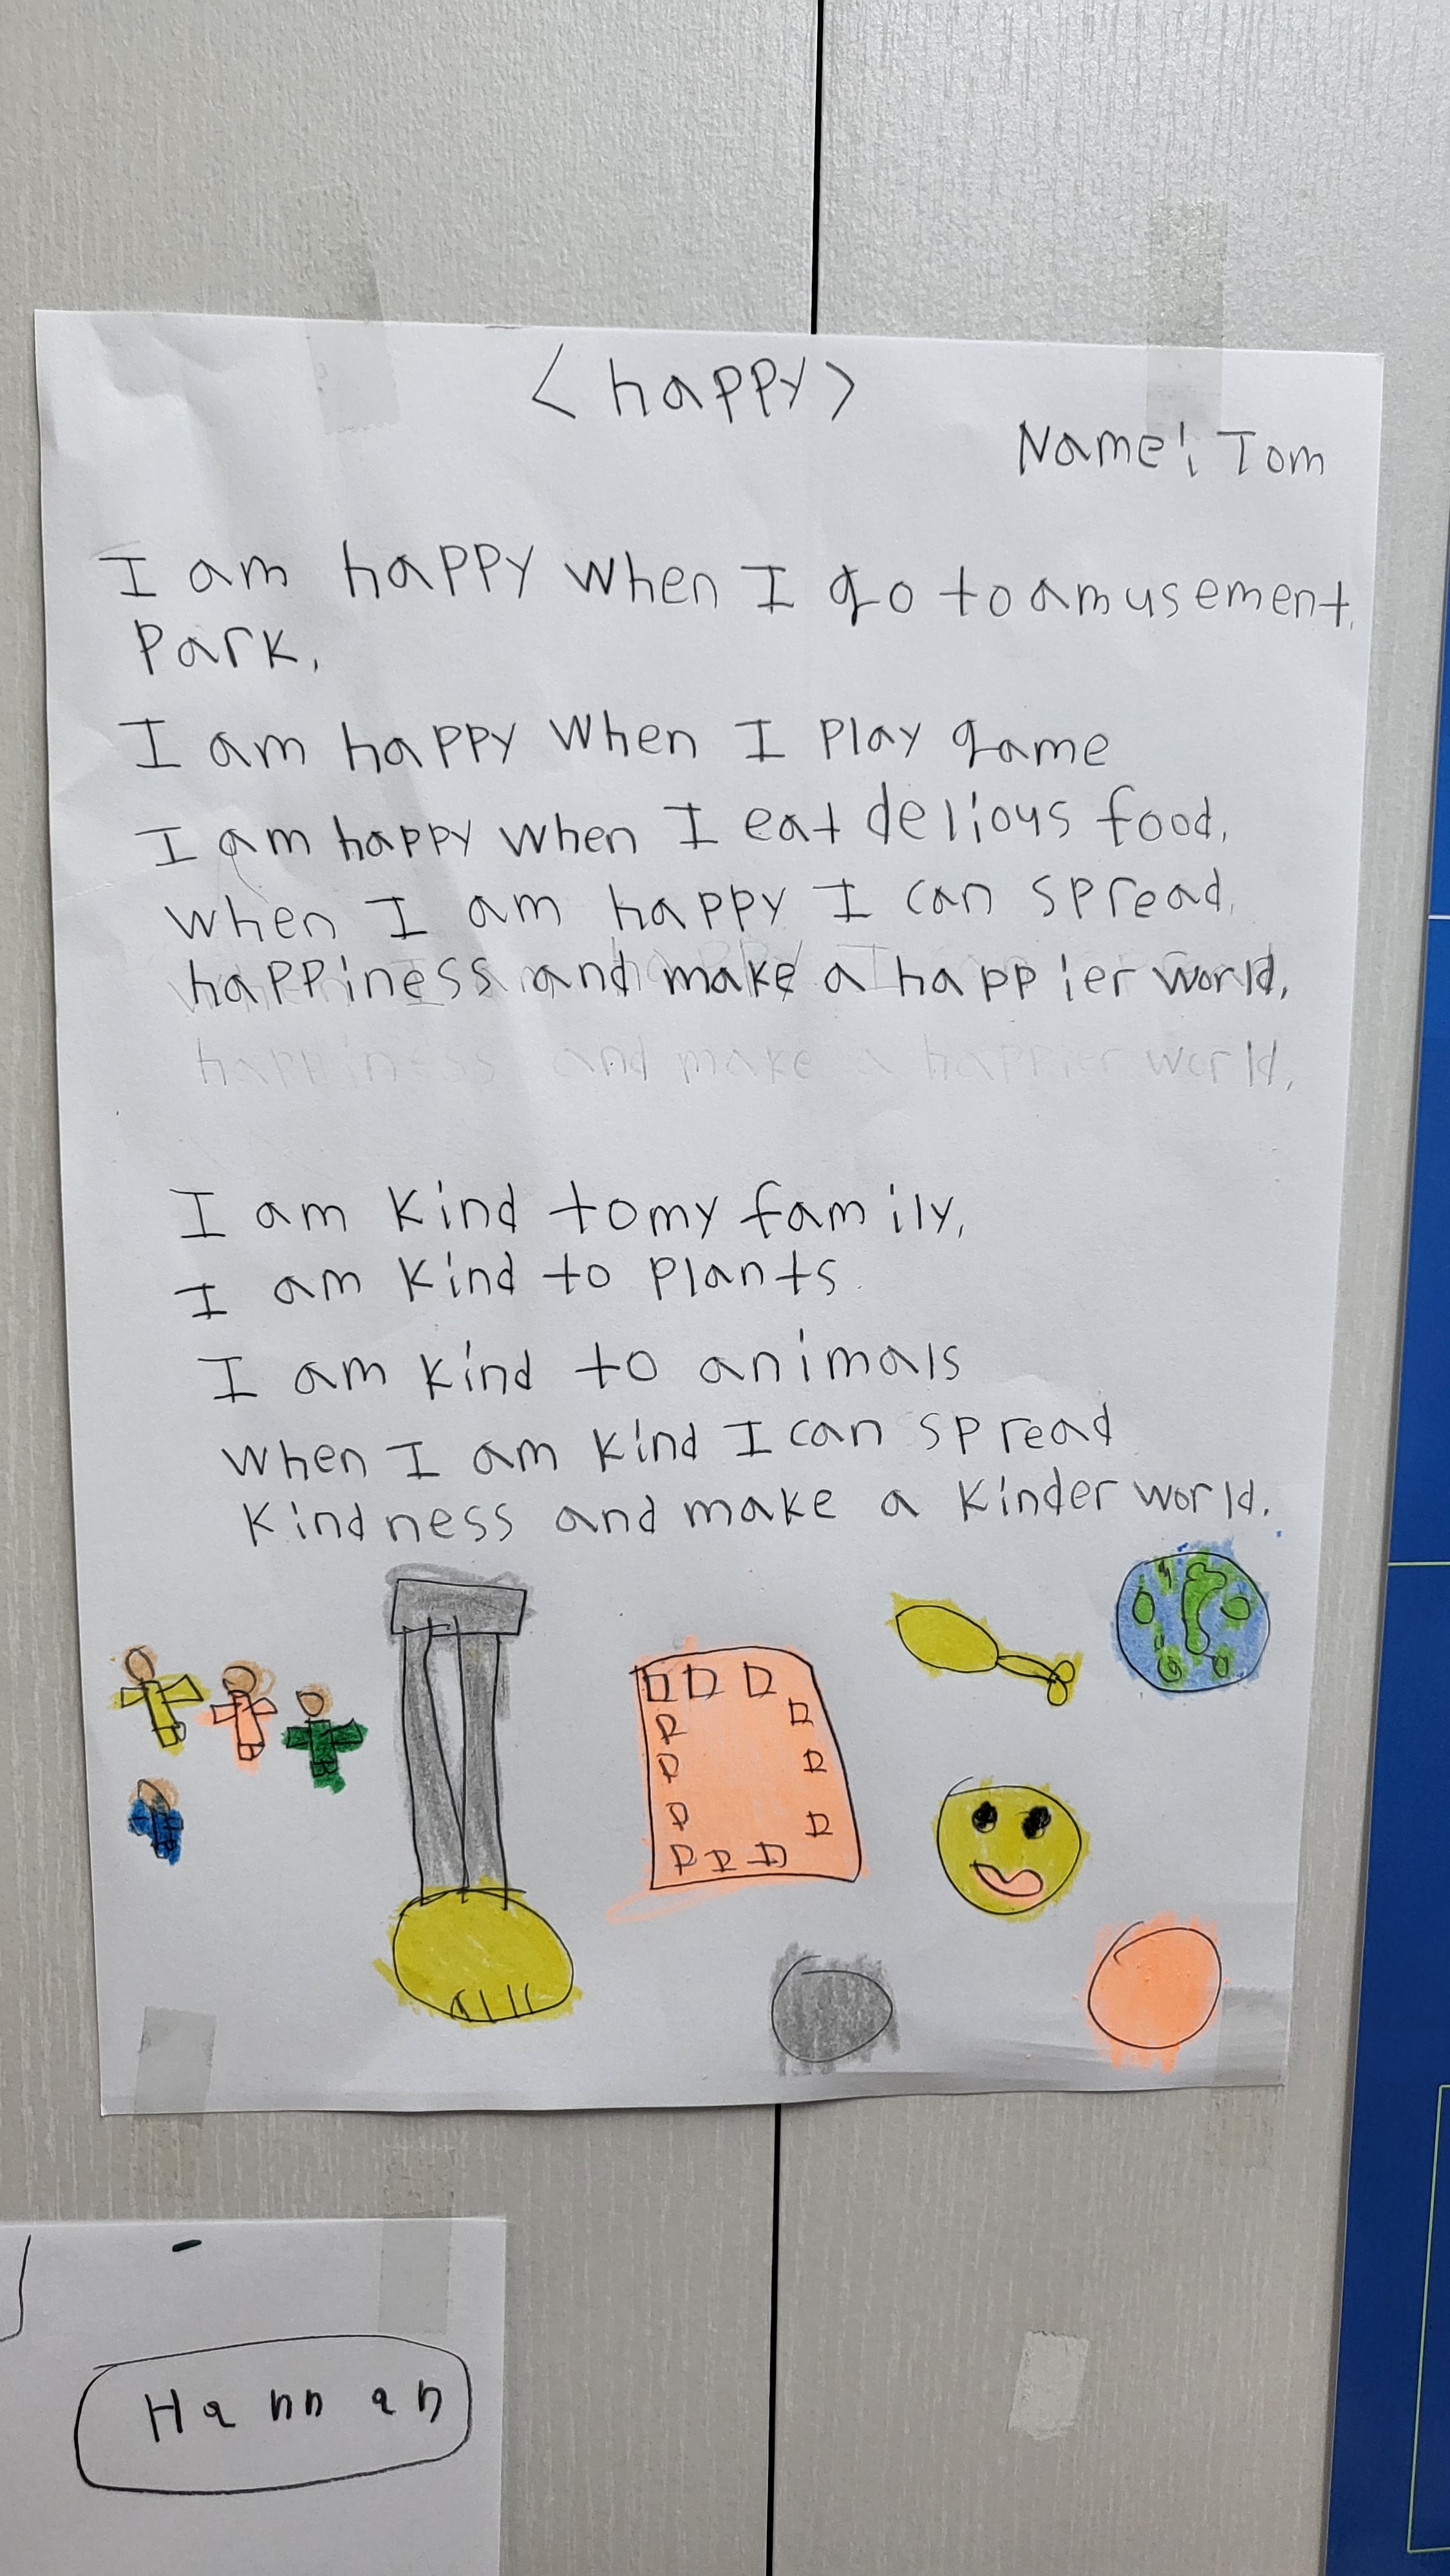 <happy>
Name: Tom
I am happy when I go to amusement
Park.
I am happy when I play game
I am happy when I eat delious food.
when I am happy I can spread
happiness and make a happier world.
happiness and make a happier world.
I am kind to my family.
I am kind to plants.
I am kind to animals
when I am kind I can spread
kindness and make a kinder world.
Hannah